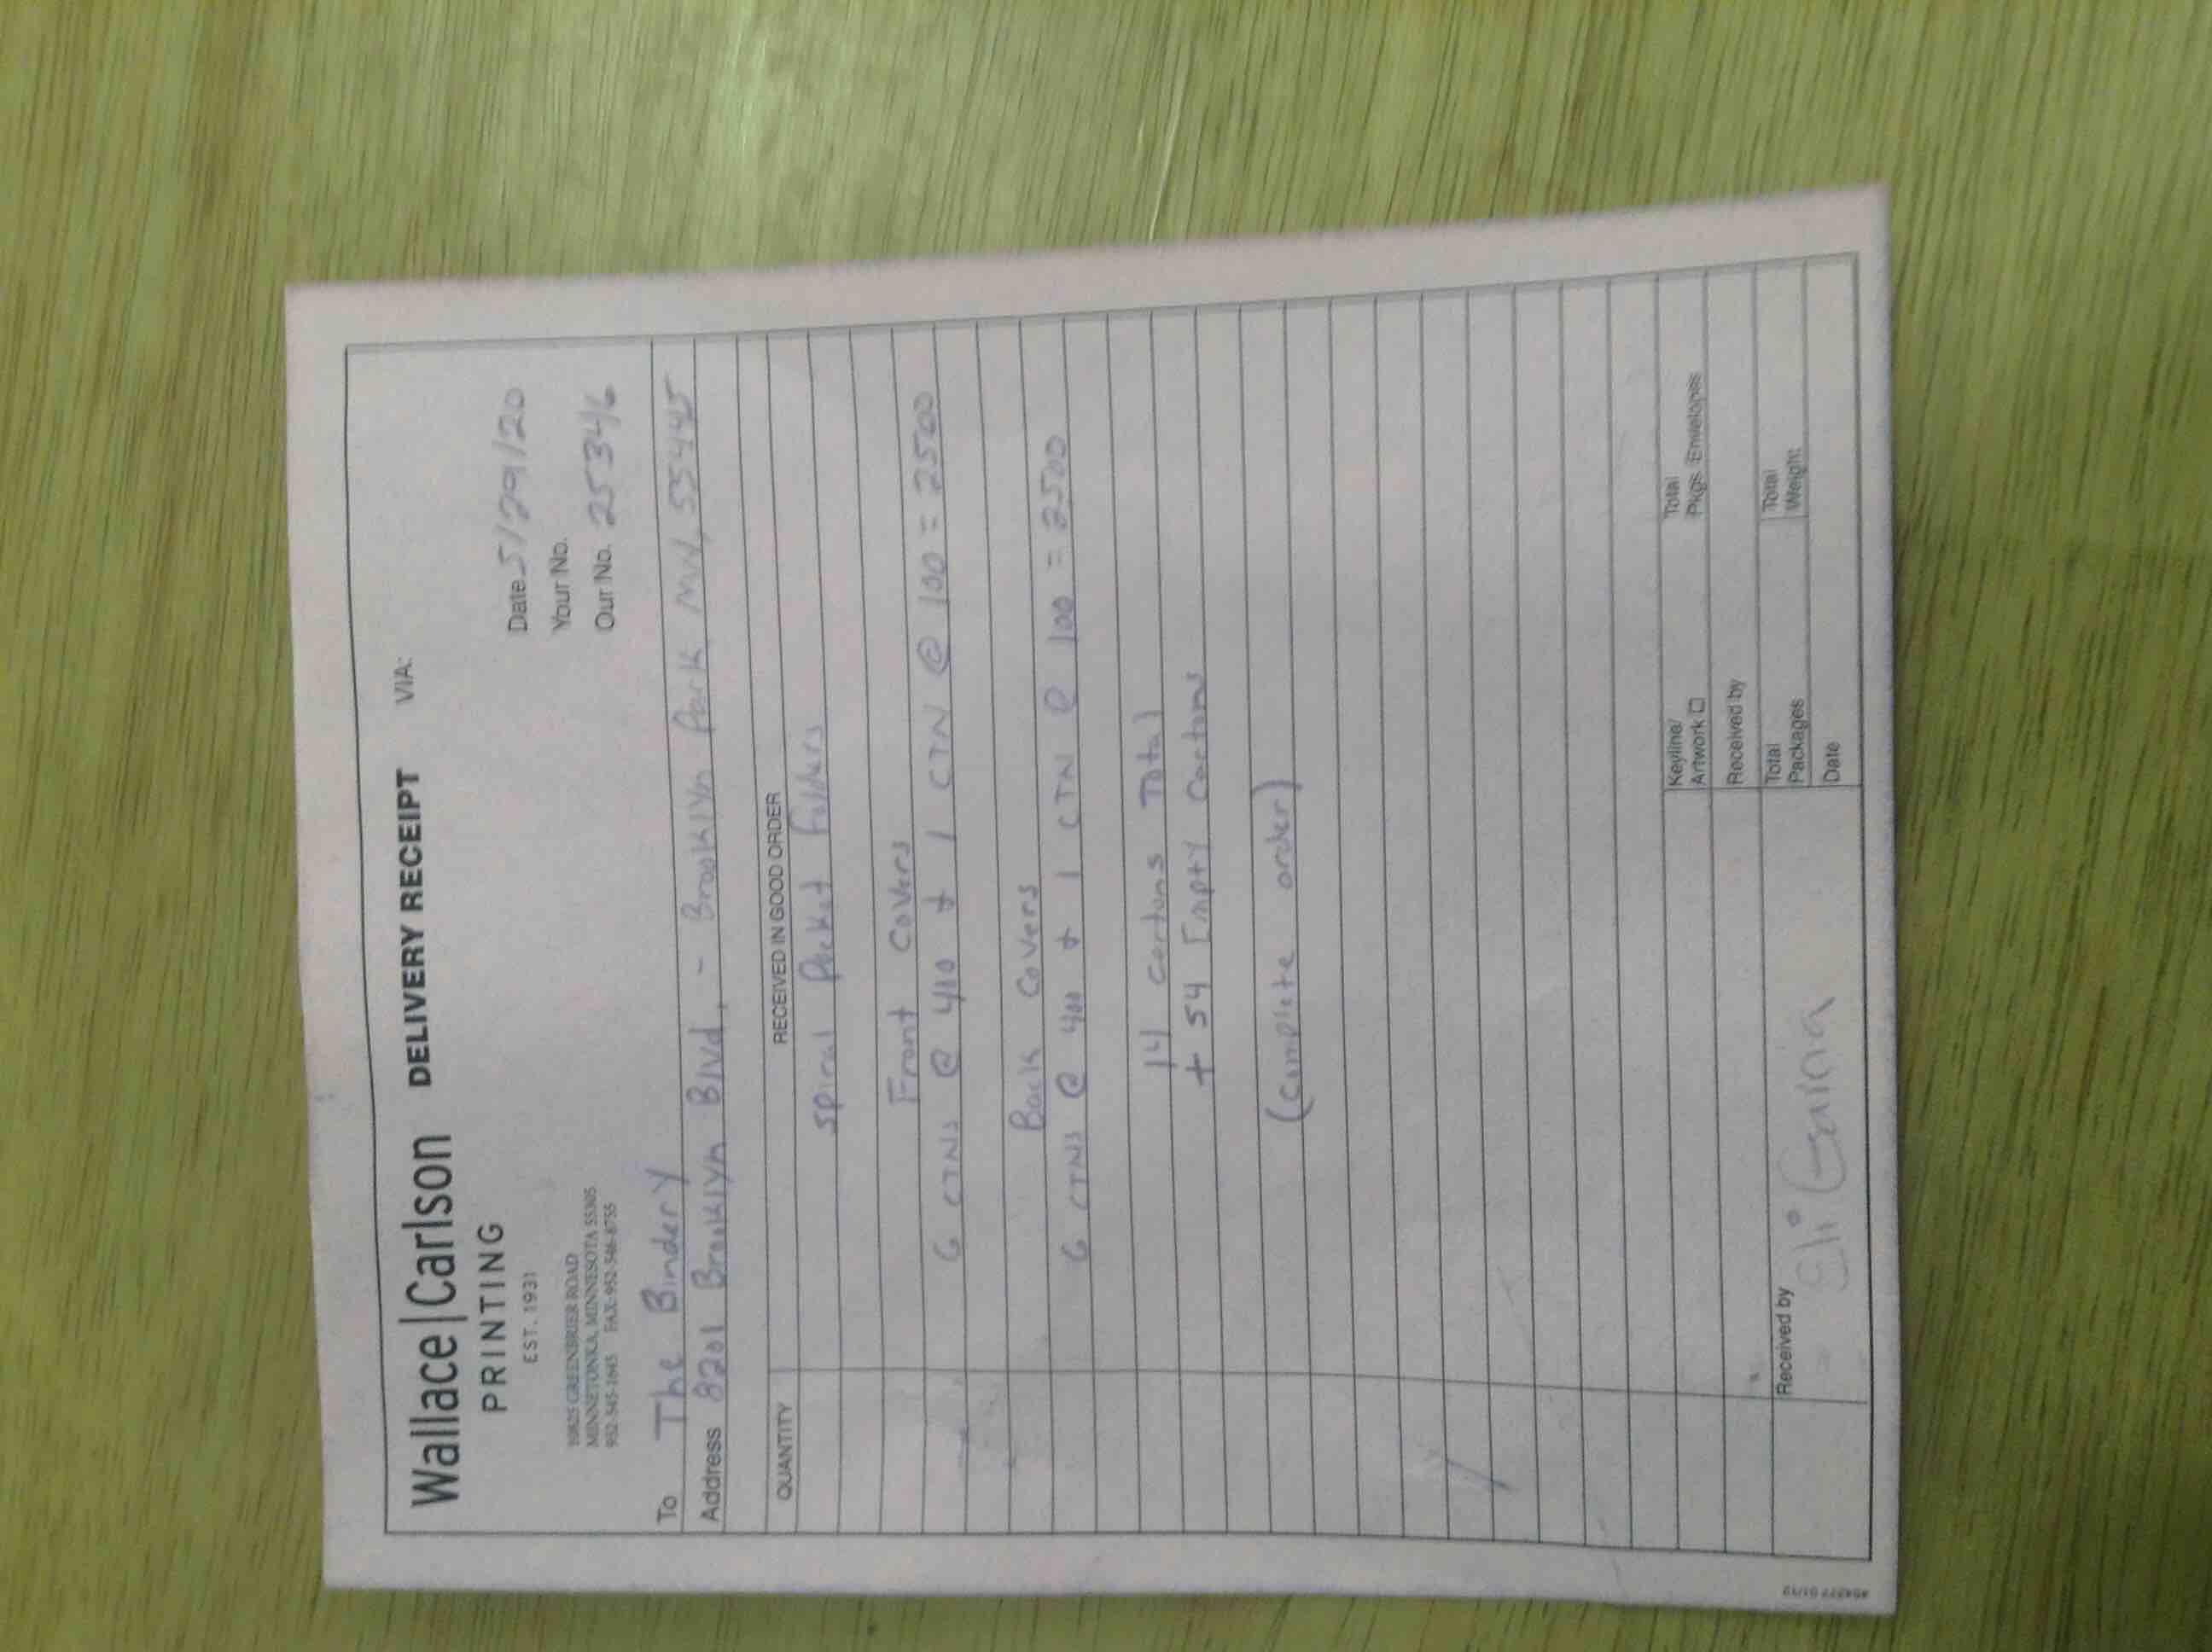 Wallace|Carlson DELIVERY RECEIPT VIA:
PRINTING
EST. 1931
Date 5/29/20
Your No.
Our No. 25346
10825 GREENBRIER ROAD
MINNETONKA, MINNESOTA 55305
952-545-1645 FAX-952-546-8755
To The Bindery
Address 8201 Brooklyn Blvd, - Brooklyn Park MN, 55445
QUANTITY RECEIVED IN GOOD ORDER
Spiral Pocket Folders
Front Covers
6 CTNS @ 400 + 1 CTN @ 100 = 2500
Back Covers
6 CTNS @ 400 + 1 CTN @ 100 = 2500
14 Cartons Total
+ 54 Empty Cartons
(Complete order)
Keyline/
Artwork
Total
Pkgs. Envelopes
Received by
Received by Eli
Total
Packages
Total
Weight
Date